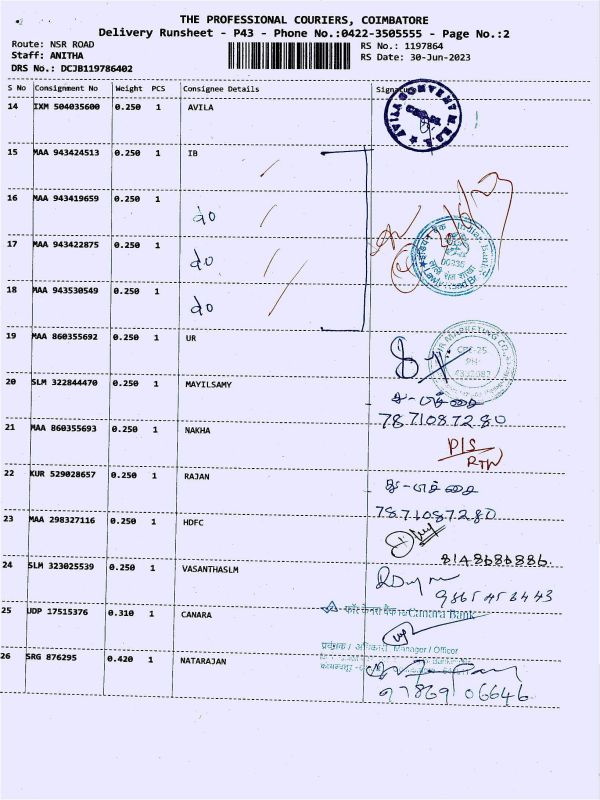 THE PROFESSIONAL COURIERS, COIMBATORE
Delivery Runsheet - P43 - Phone No.:0422-3505555 - Page No.:2
Route: NSR ROAD
RS No.: 1197864
Staff: ANITHA
RS Date: 30-Jun-2023
DRS No.: DCJB119786402
S No Consignment No Weight PCS Consignee Details Signature
14 IXM 504035600 0.250 1 AVILA
15 MAA 943424513 0.250 1 IB
16 MAA 943419659 0.250 1 do
17 MAA 943422875 0.250 1 do
18 MAA 943530549 0.250 1 do
19 MAA 860355692 0.250 1 UR
20 SLM 322844470 0.250 1 MAYILSAMY
7871087280
21 MAA 860355693 0.250 1 NAKHA
P/S
RTN
22 KUR 529028657 0.250 1 RAJAN
7871087280
23 MAA 298327116 0.250 1 HDFC
8148686886.
24 SLM 323025539 0.250 1 VASANTHASLM
25 UDP 17515376 0.310 1 CANARA
Canara Bank
Manager / Officer
26 SRG 876295 0.420 1 NATARAJAN
97869 06646